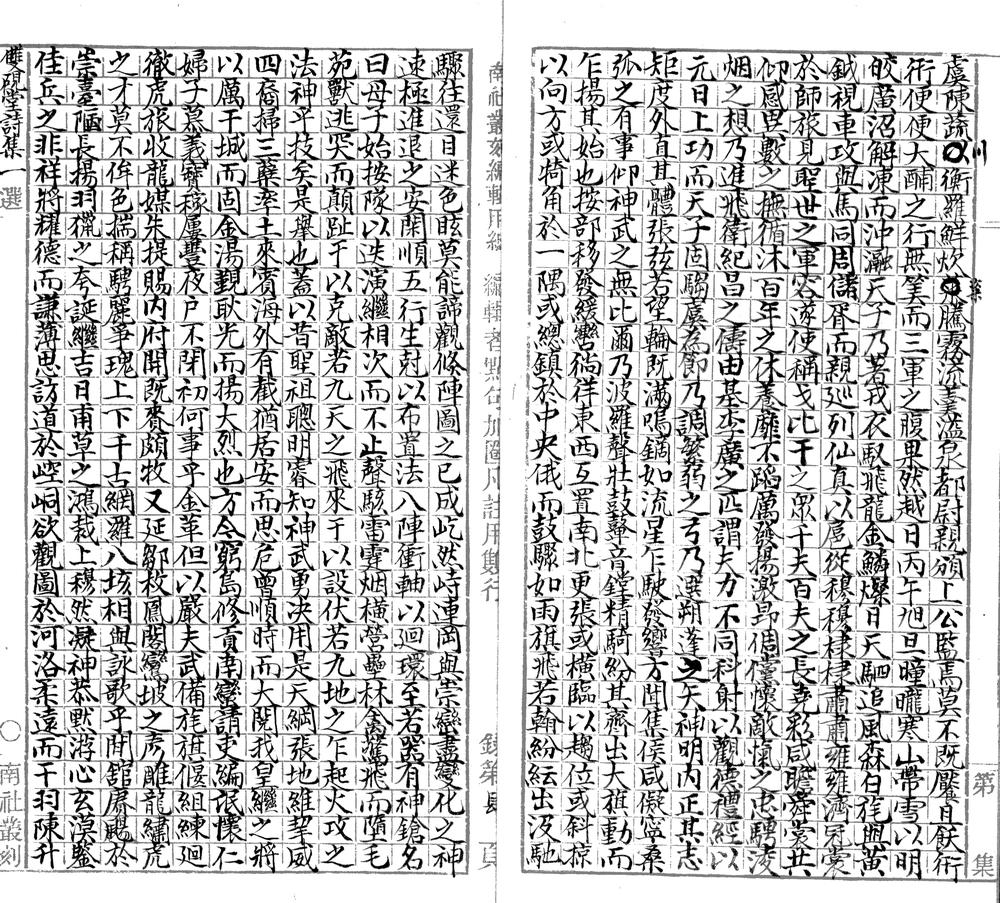 盧陳蔬〇衡羅鮮炊〇騰霧流羹溢泉都尉親頒上公監焉莫不既饜且飫術
川
粢
術便便大酺之行無筭而三軍之腹果然越日丙午旭旦曈曨寒山帶雪以明
皎廣沼解凍而沖瀜天子乃著戎衣馭飛龍金鱗爍日天駟追風森白旄與黃
鉞視車攻與馬同周儲胥而親巡列仙真以扈從穆穆棣棣肅肅雍雍濟濟冠裳
於師旅見聖世之軍容遂使稱戈比干之眾千夫百夫之長堯彩咸瞻舜裳共
仰感思數之撫循沐百年之休養靡不蹈厲發揚激昂倜儻懷敵愾之忠騁凌
烟之想乃進飛衛紀昌之儔由基李廣之匹謂夫力不同科射以觀德禮經以
元日上功而天子固騶虞為節乃調繁弱之弓乃選朔蓬之矢神明內正其志
矩度外直其體張弦若望輪既滿鳴鏑如流星乍駛發響方聞集侯咸儗寧桑
弧之有事仰神武之無比爾乃波羅聲壯鼓鼙音鏜精騎紛其齊出大旗動而
乍揚其始也按部移發緩轡徜徉東西互置南北更張或橫臨以趨位或斜掠
以向方或犄角於一隅或總鎮於中央俄而鼓驟如雨旗飛若翰紛紜出沒馳
南社叢刻編輯用紙　編輯者點句加圈凡註用雙行　錄第　頁
驟往還目迷色眩莫能諦觀倏陣圖之已成屹然峙連岡與崇巒盡變化之神
速極進退之安閑順五行生尅以布置法八陣衝軸以迴環至若器有神鎗名
曰母子始按隊以迭演繼相次而不止聲駭雷霆烟橫營壘林禽驚飛而墮毛
苑獸逃哭而顛趾于以克敵若九天之飛來于以設伏若九地之乍起火攻之
法神乎技矣是舉也蓋以昔聖祖聰明睿知神武勇決用是天綱張地維挈威
四裔掃三蘖率土來賓海外有截猶居安而思危曾順時而大閱我皇繼之將
以厲干城而固金湯覲耿光而揚大烈也方今窮島修貢南蠻請吏編氓懷仁
婦子慕義寶稼屢豐夜戶不閉初何事乎金革但以嚴夫武備旄旗偃組練迴
徹虎旅收龍媒朱提賜內府開既賚頗牧又延鄒枚鳳閣鸞坡之彥雕龍繡虎
之才莫不侔色揣稱騁麗爭瑰上下千古網羅八垓相與詠歌乎閒館賡颺於
崇臺陋長揚羽獵之夸誕繼吉日甫草之鴻裁上穆然凝神恭默游心玄漠鑒
佳兵之非祥將耀德而謙薄思訪道於崆峒欲觀圖於河洛柔遠而干羽陳升
雙硯堂詩集一選　〇南社叢刻
第　集